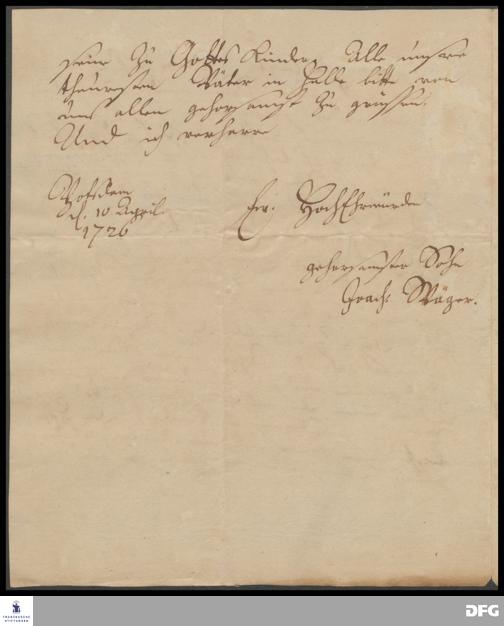 seine zu Gottes Kinder. Alle unsre
theuresten Väter in Halle bitte von
uns allen gehorsamst zu grüssen.
Und ich verharre
Potsdam
d. 10 April
1726
Ew. HochEhrwürden
gehorsamster Sohn
Joach.
FRANCKESCHE
STIFTUNGEN
DFG